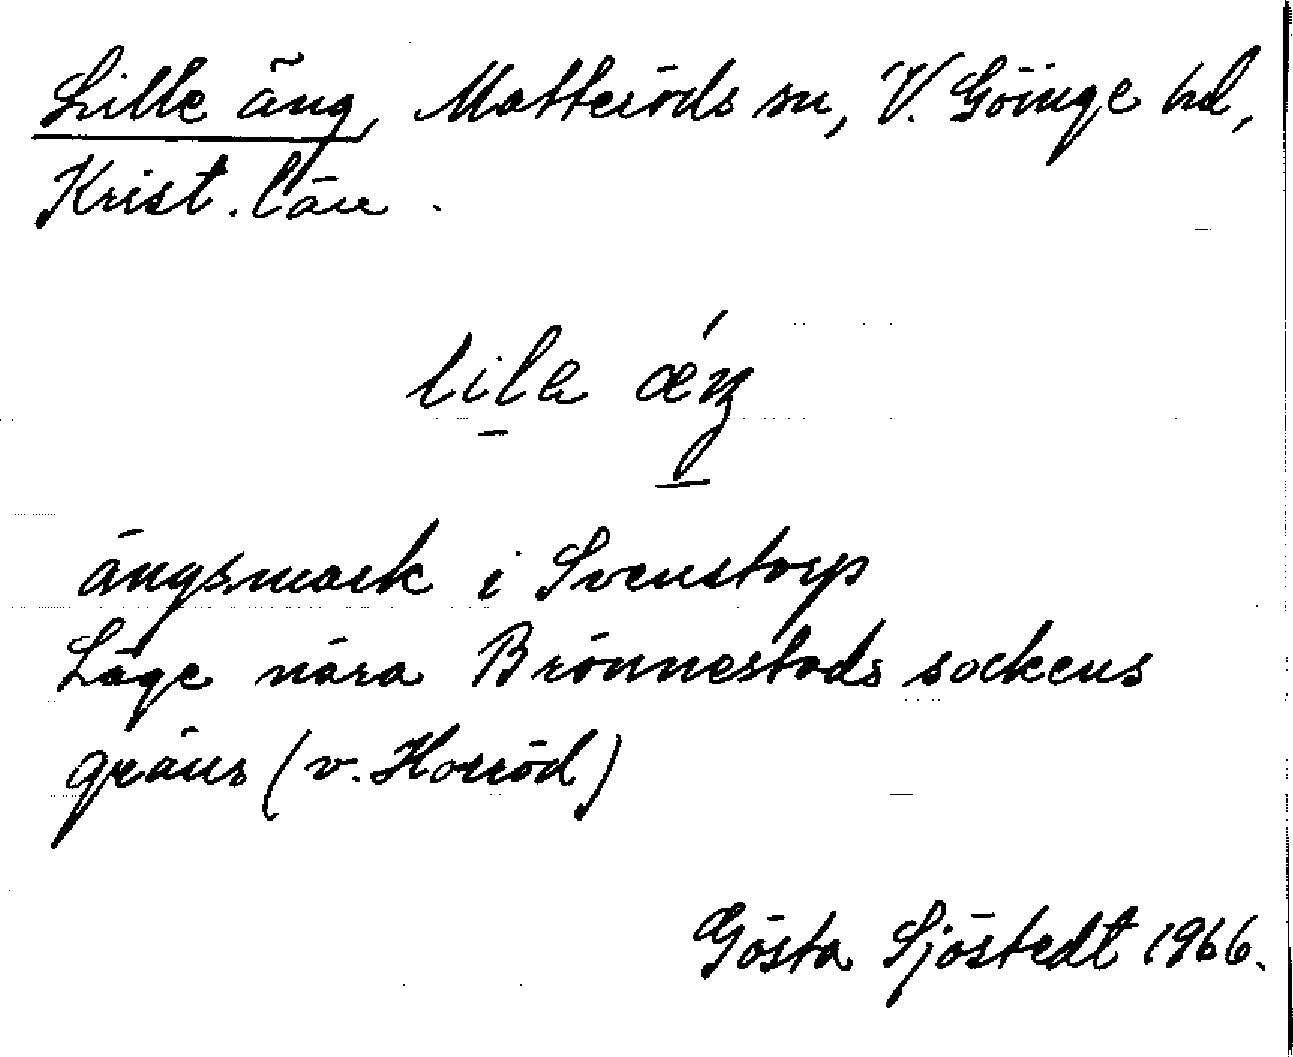 Lille äng, Matteröds sn, V. Göinge hd,
Krist. län.
lilɐ ǽŋ
ängsmark i Svenstorp
Läge nära Brönnestads sockens
gräns (v. Horröd)
Gösta Sjöstedt 1966.